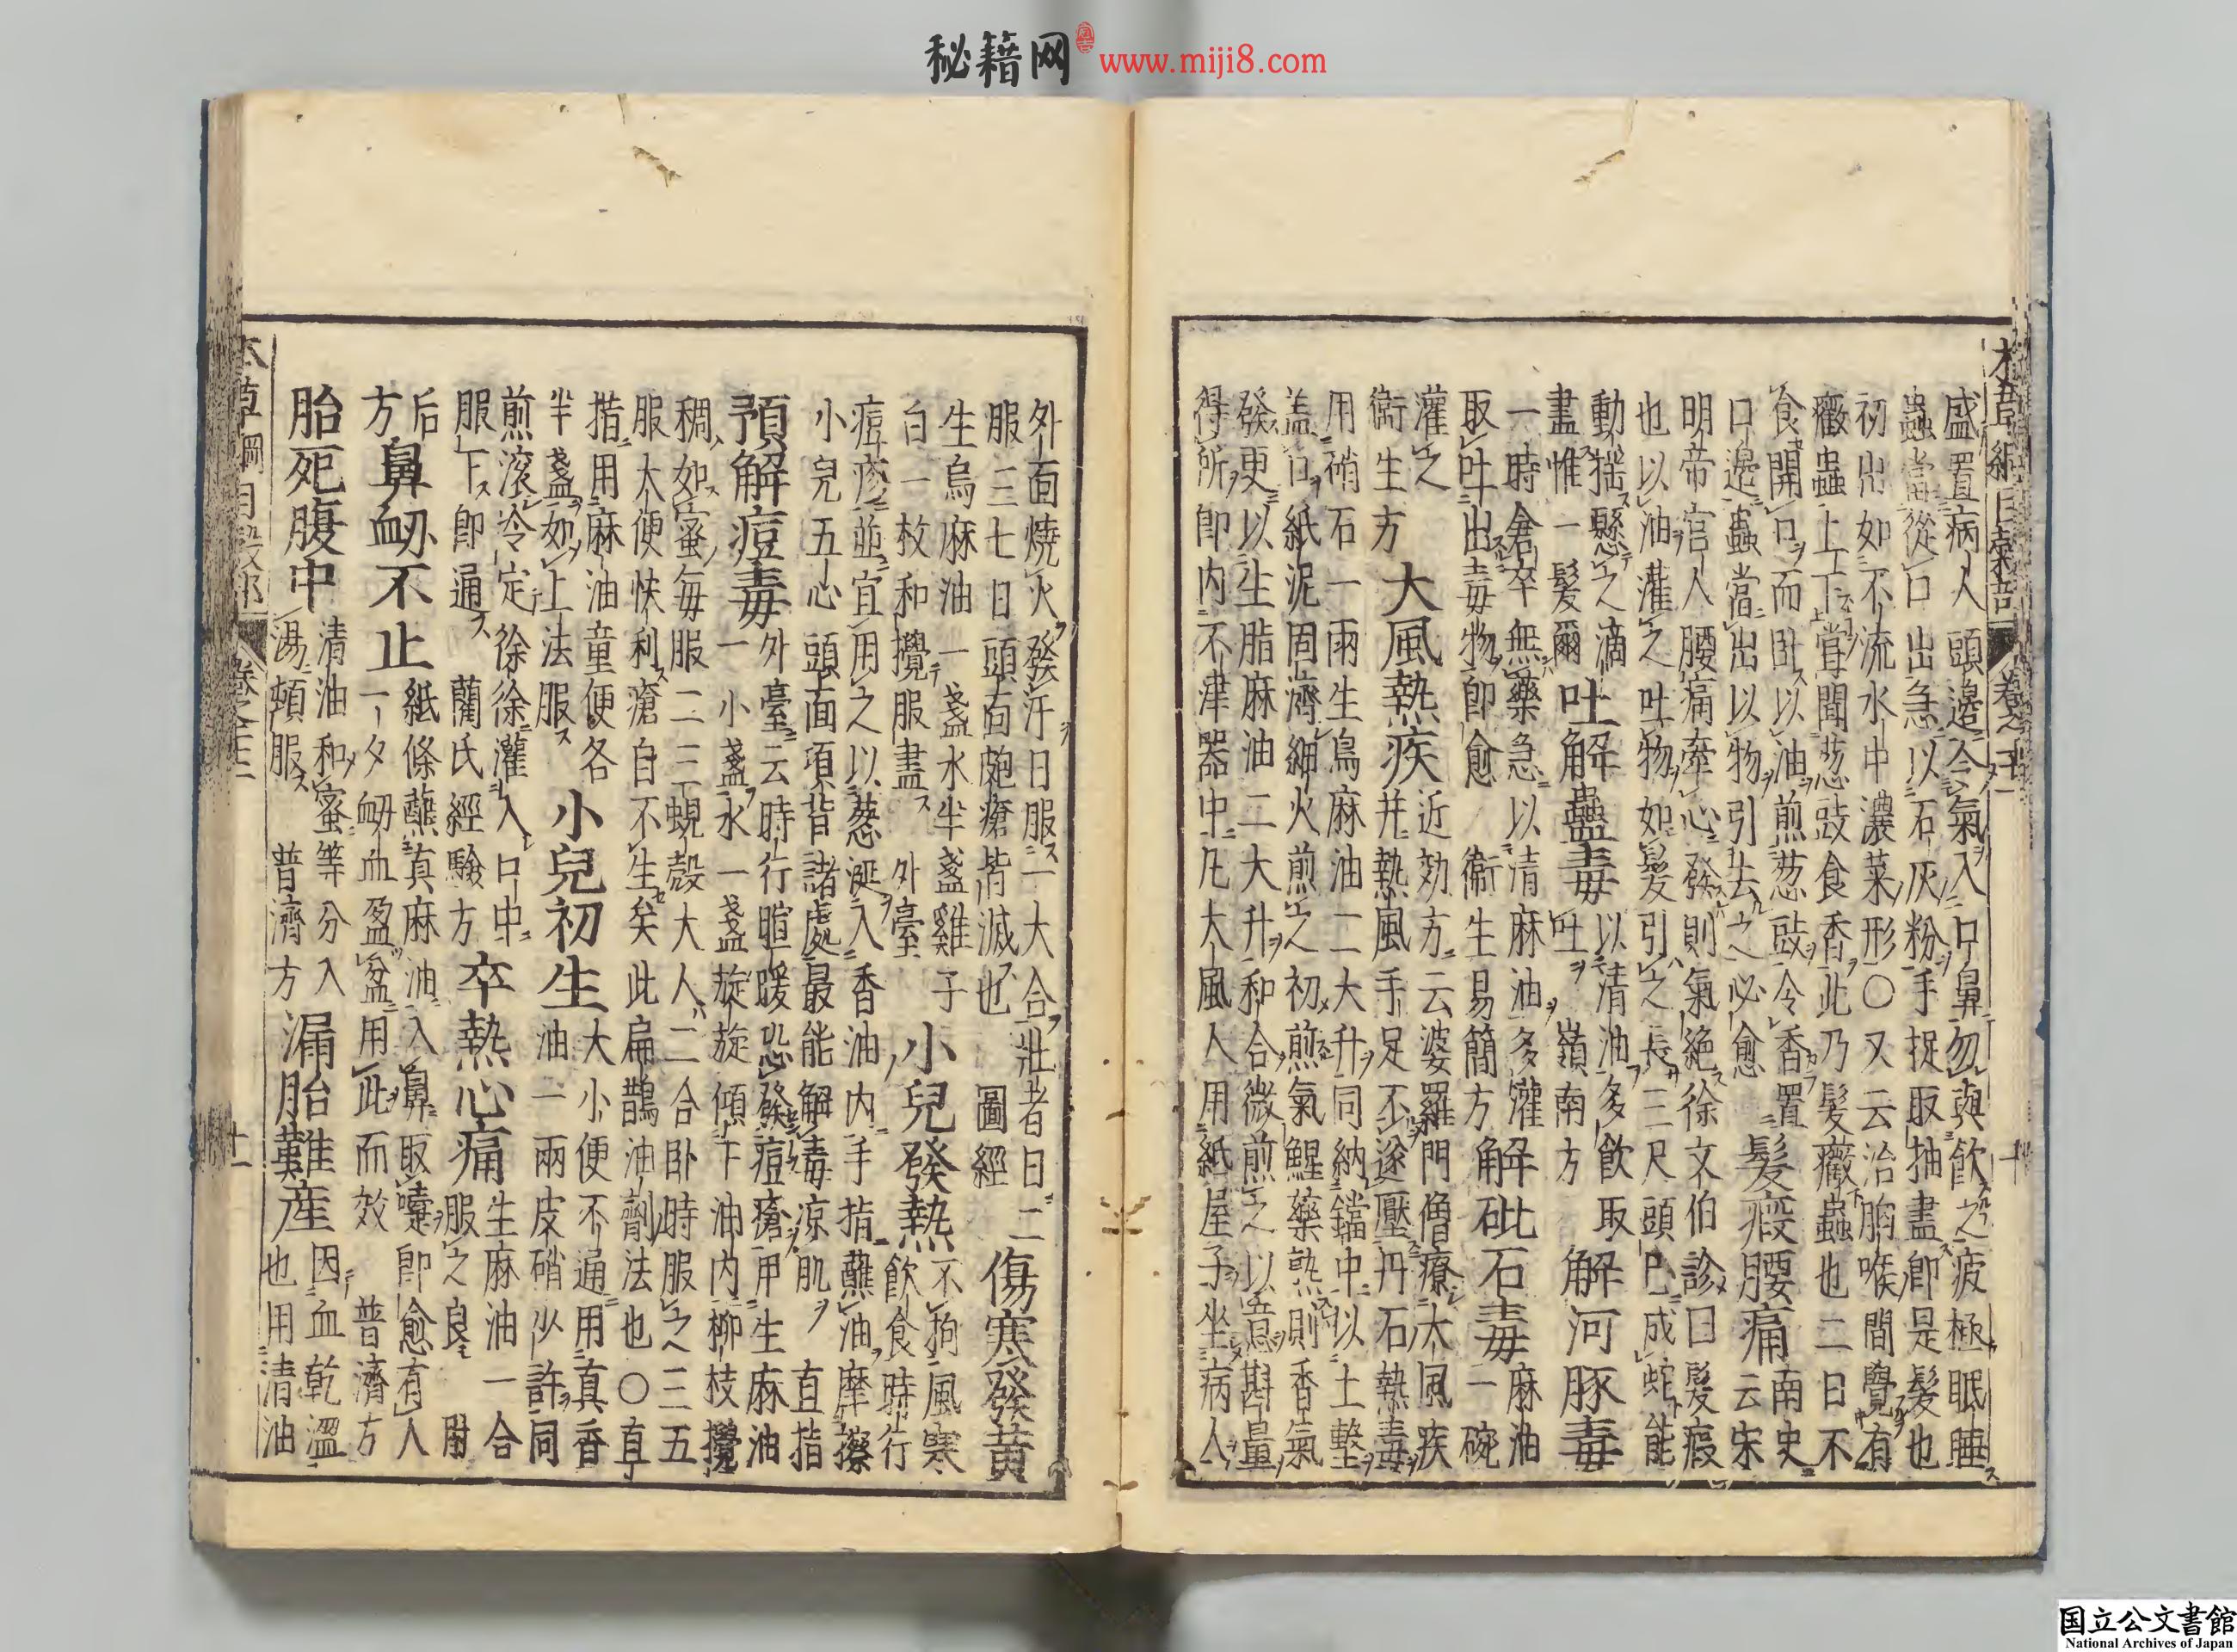 本草綱目穀部 卷之二十二 十
盛置病人頭邊令氣入口鼻勿與飲之疲極眠睡
蟲當從口出急以石灰粉手捉取抽盡卽是髮也
初出如不流水中濃菜形〇又云治胸喉間覺有
癥蟲上下嘗聞葱豉食香此乃髮癥蟲也二日不
食開口而臥以油煎葱豉令香置
口邊蟲當出以物引去之必愈
髮瘕腰痛
南史
云宋
明帝宮人腰痛牽心發則氣絕徐文伯診曰髮瘕
也以油灌之吐物如髮引之長三尺頭已成蛇能
動搖懸之滴
盡惟一髮爾
吐解蠱毒
以清油多飲取
吐 嶺南方
解河豚毒
一時倉卒無藥急以清麻油多灌
取吐出毒物卽愈 衛生易簡方
解砒石毒
麻油
一碗
灌之
衛生方
大風熱疾
近効方云婆羅門僧療大風疾
并熱風手足不遂壓丹石熱毒
用硝石一兩生烏麻油二大升同納鐺中以土墼
蓋口紙泥固濟細火煎之初煎氣腥藥熟則香氣
發更以生脂麻油二大升和合微煎之以意斟量
得所卽內不津器中凡大風人用紙屋子坐病人
外面燒火發汗日服一大合壯者日二
服三七日頭面皰瘡皆滅也 圖經
傷寒發黃
生烏麻油一盞水半盞雞子
白一枚和攪服盡 外臺
小兒發熱
不拘風寒
飲食時行
痘疹並宜用之以葱涎入香油內手指蘸油摩擦
小兒五心頭面項背諸處最能解毒涼肌 直指
預解痘毒
外臺云時行暄暖恐發痘瘡用生麻油
一小盞水一盞旋旋傾下油內柳枝攪
稠如蜜每服二三蜆殼大人二合臥時服之三五
服大便快利瘡自不生矣此扁鵲油劑法也〇直
指用麻油童便各
半盞如上法服
小兒初生
大小便不通用真香
油一兩皮硝少許同
煎滾冷定徐徐灌入口中
服下卽通 藺氏經驗方
卒熱心痛
生麻油一合
服之良 肘
后
方
鼻衄不止
紙條蘸真麻油入鼻取嚏卽愈有人
一夕衄血盈盆用此而效 普濟方
胎死腹中
清油和蜜等分入
湯頓服 普濟方
漏胎難產
因血乾澀
也用清油
本草綱目穀部 卷之二十二 十一
秘籍网 www.miji8.com
国立公文書館
National Archives of Japan